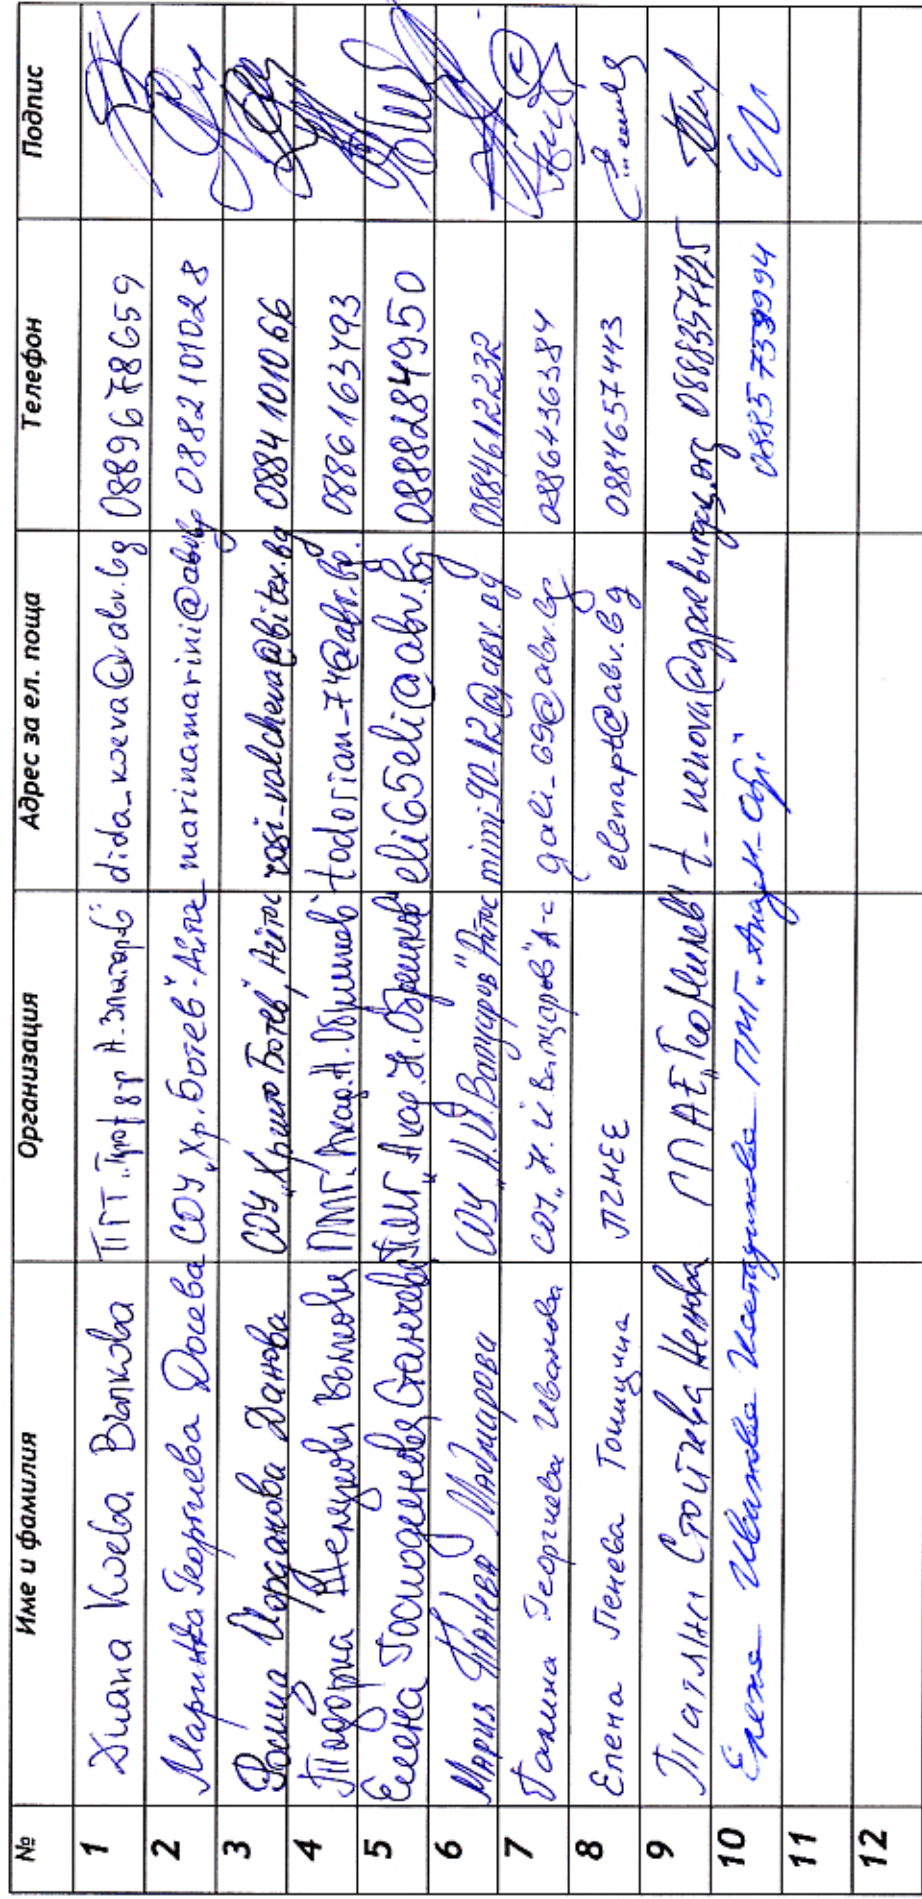 № Име и фамилия Организация Адрес за ел. поща Телефон Подпис
1 Диана Коева Вълкова ПГТ „Проф. д-р А. Златаров“ dida_koeva@abv.bg 0889678659
2 Маринка Георгиева Досева СОУ „Хр. Ботев“ - Айтос marinamarini@abv.bg 0882101028
3 Росица Йорданова Данова СОУ „Христо Ботев“, Айтос rosi-valcheva@bitex.bg 0884101066
4 Тодорка Вълкова ПМГ „Акад. Н. Обрешков“ todorian-74@abv.bg. 0886163793
5 Елена Господинова Станчева ПМГ „Акад. Н. Обрешков“ eli65eli@abv.bg 0888284950
6 Мария Панева Маджарова СОУ „Н. Й. Вапцаров“ Айтос mimi-90-12@abv.bg 0884612232
7 Галина Георгиева Иванова СОУ „Н. Й. Вапцаров“ А-с gali_69@abv.bg 0886436384
8 Елена Пенева Тонищина ПГМЕЕ elenapt@abv.bg 0884657443
9 Татяна Стойчева Ненова ГПАЕ „Гео Милев“ t_nenova@gpaeburgas.org 0888357725
10 Елена Иванова ПМГ „Акад. Н. Обр.“
11
12